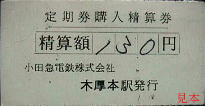 定期券購入精算券
精算額 130円
小田急電鉄株式会社
本厚木駅発行
見本